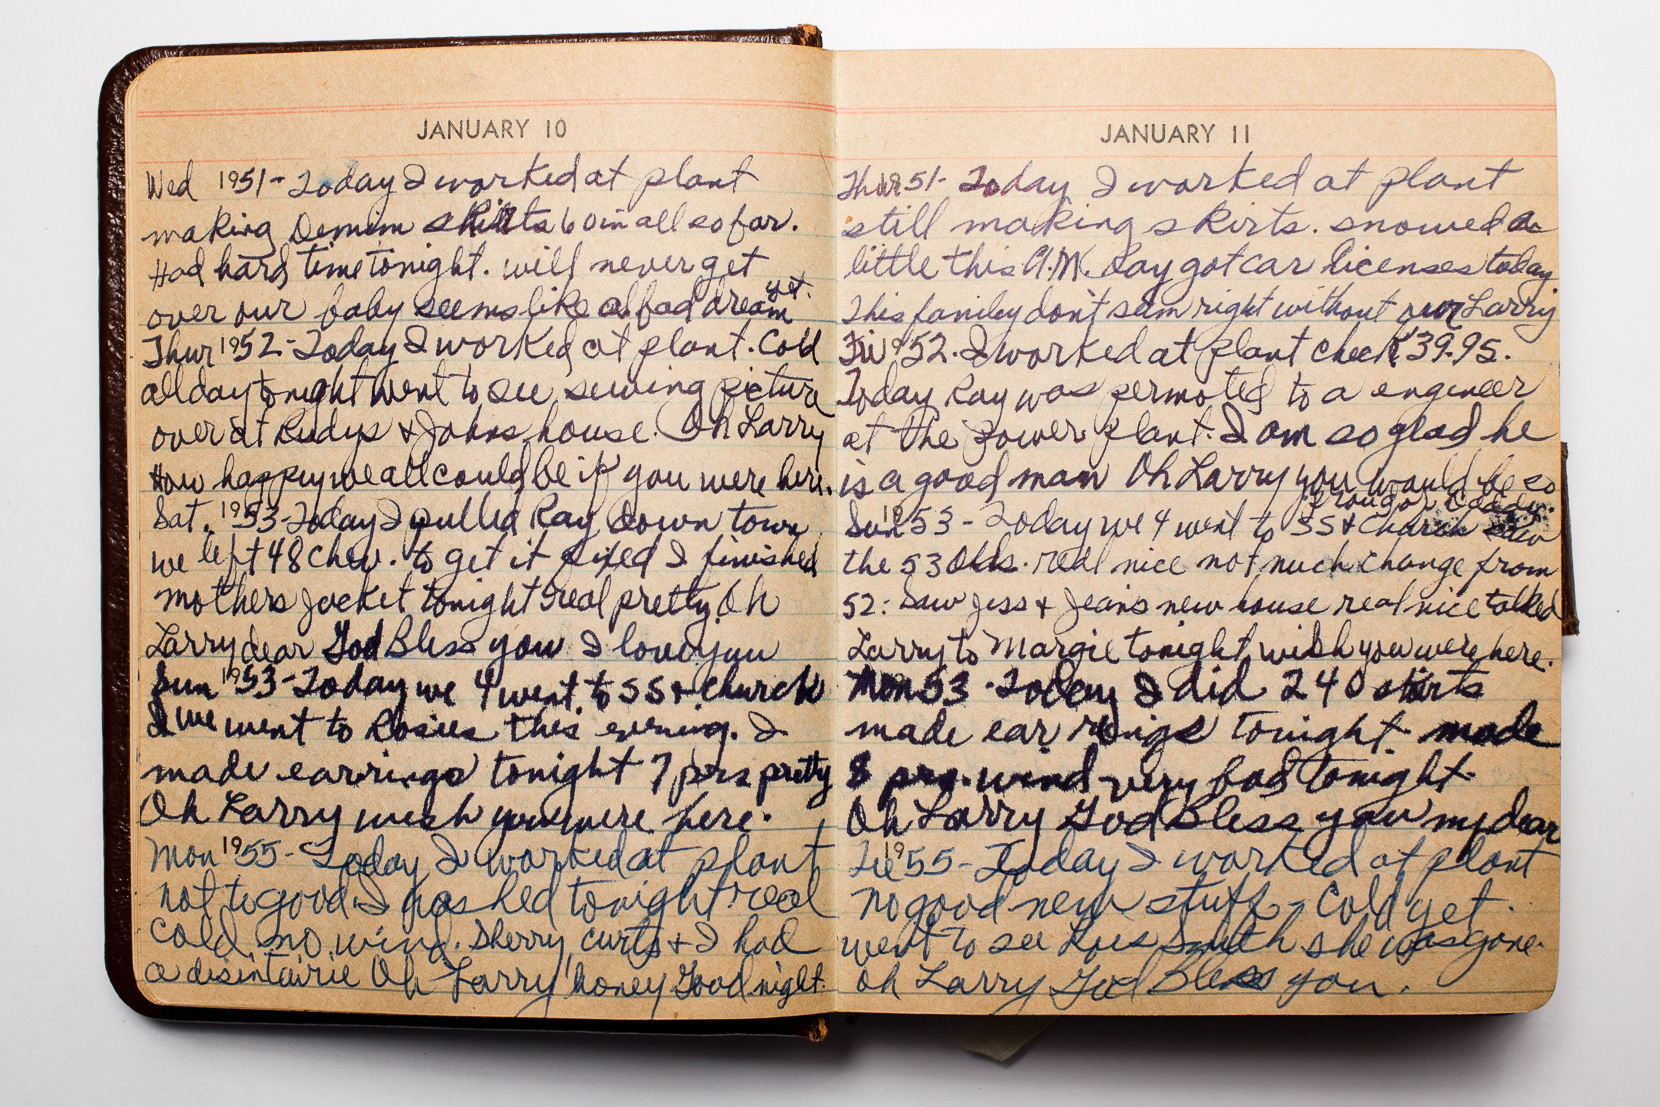 JANUARY 10
Wed 1951- Today I worked at plant
making Demim skirts 60 in all so far.
Had hard time tonight. will never get
over our baby seems like a bad dream yet.
Thur 1952- Today I worked at plant. Cold
all day tonight went to see sewing picture
over at Rudys & Johns house. Oh Larry
How happy we all could be if you were here.
Sat. 1953- Today I pulled Ray down town
we left 48 chev. to get it fixed I finished
mothers jacket tonight real pretty Oh
Larry dear God Bless you I love you
Sun 1953- Today we 4 went to SS & church
I we went to Rosies this evening. I
made earrings tonight 7 prs pretty
Oh Larry wish you were here.
Mon 1955- Today I worked at plant
not to good. I washed tonight real
cold. no wind. Sherry, Curts & I had
a disintairie Oh Larry honey Good night.
JANUARY 11
Thur 1951- Today I worked at plant
still making skirts. snowed a
little this A.M. Ray got car licenses today
This family don't seem right without our Larry
Fri 1952. I worked at plant check 39.95.
Today Ray was permoted to a engineer
at the Power plant. I am so glad he
is a good man Oh Larry you would be so
proud of Daddy.
Sun 1953 - Today we 4 went to SS & Church saw
the 53 Olds. real nice not much change from
52: Saw Jess & Jeans new house real nice talked
Larry to Margie tonight wish you were here.
Mon 53 - Today I did 240 skirts
made ear rings tonight made
8 prs. wind very bad tonight
Oh Larry God Bless you my dear
Tue 1955- Today I worked at plant
no good new stuff - Cold yet.
went to see Lois Smith she was gone.
Oh Larry God Bless you.